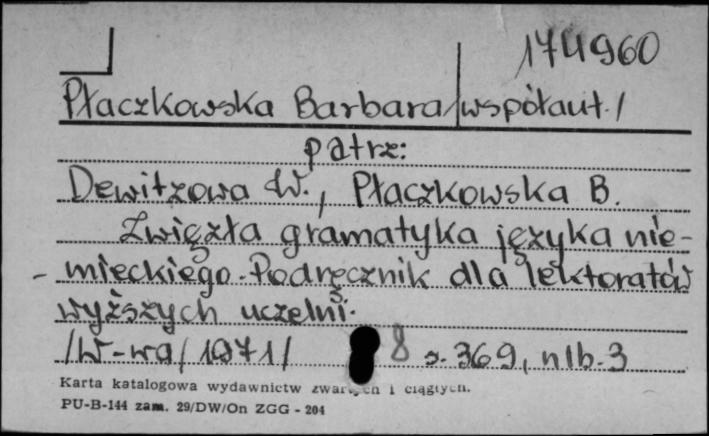 174960
Płaczkowska Barbara /współaut./
patrz:
Dewitzowa W., Płaczkowska B.
Zwięzła gramatyka języka nie-
- mieckiego. Podręcznik dla lektoratów
wyższych uczelni.
/W-wa/ 1971/ 8 s. 369, nlb. 3
Karta katalogowa wydawnictw zwartych i ciągłych.
PU-B-144 zam. 29/DW/On ZGG - 204